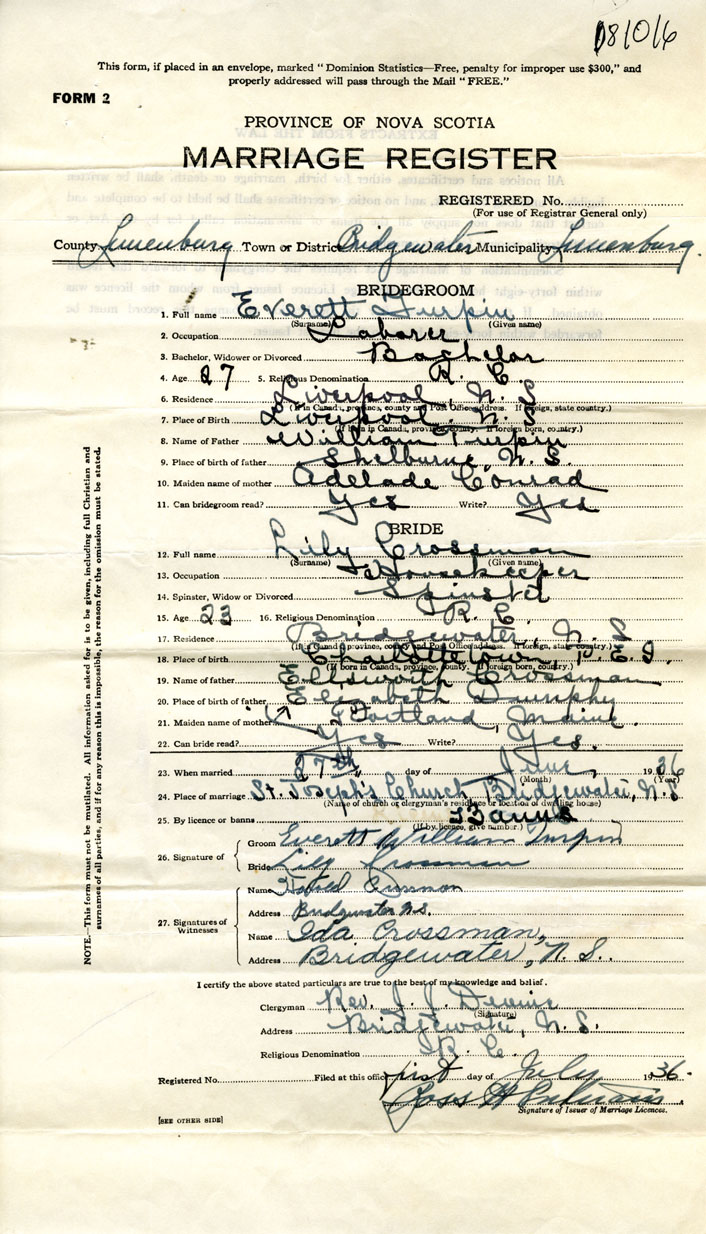 181016
This form, if placed in an envelope, marked " Dominion Statistics—Free, penalty for improper use $300," and
properly addressed will pass through the Mail " FREE."
FORM 2
PROVINCE OF NOVA SCOTIA
MARRIAGE REGISTER
REGISTERED No.
(For use of Registrar General only)
County Lunenburg Town or District Bridgewater Municipality Lunenburg.
BRIDEGROOM
1. Full name Everett Turpin
(Surname) (Given name)
2. Occupation Laborer
3. Bachelor, Widower or Divorced Bachelor
4. Age 27 5. Religious Denomination R. C.
6. Residence Liverpool, N. S
(If in Canada, province, county and Post Office address. If foreign, state country.)
7. Place of Birth Liverpool. N. S
(If born in Canada, province, county. If foreign born, country.)
8. Name of Father William Turpin
9. Place of birth of father Shelburne, N. S.
10. Maiden name of mother Adelade Conrad
11. Can bridegroom read? Yes Write? Yes
BRIDE
12. Full name Lily Crossman
(Surname) (Given name)
13. Occupation Housekeeper
14. Spinster, Widow or Divorced Spinster
15. Age 23 16. Religious Denomination R. C.
17. Residence Bridgewater, N. S
(If in Canada, province, county and Post Office address. If foreign, state country.)
18. Place of birth Charlottetown P. E. I.
(If born in Canada, province, county. If foreign born, country.)
19. Name of father Ellsworth Crossman
20. Place of birth of father Elizabeth Dunphy
21. Maiden name of mother Portland, Maine.
22. Can bride read? Yes Write? Yes.
23. When married 27th day of June, 1936
(Month) (Year)
24. Place of marriage St. Joseph's Church Bridgewater, N. S
(Name of church or clergyman's residence or location of dwelling house)
25. By licence or banns Banns
(If by licence, give number.)
26. Signature of
Groom Everett William Turpin
Bride Lily Crossman
27. Signatures of Witnesses
Name Crossman
Address Bridgewater N.S.
Name Ida Crossman,
Address Bridgewater, N. S.
I certify the above stated particulars are true to the best of my knowledge and belief.
Clergyman Rev. J. J.
(Signature)
Address Bridgewater, N. S.
Religious Denomination R. C.
Registered No. Filed at this office first day of July 1936.
Ross H
Signature of Issuer of Marriage Licences.
[SEE OTHER SIDE]
NOTE.—This form must not be mutilated. All information asked for is to be given, including full Christian and
surnames of all parties, and if for any reason this is impossible, the reason for the omission must be stated.